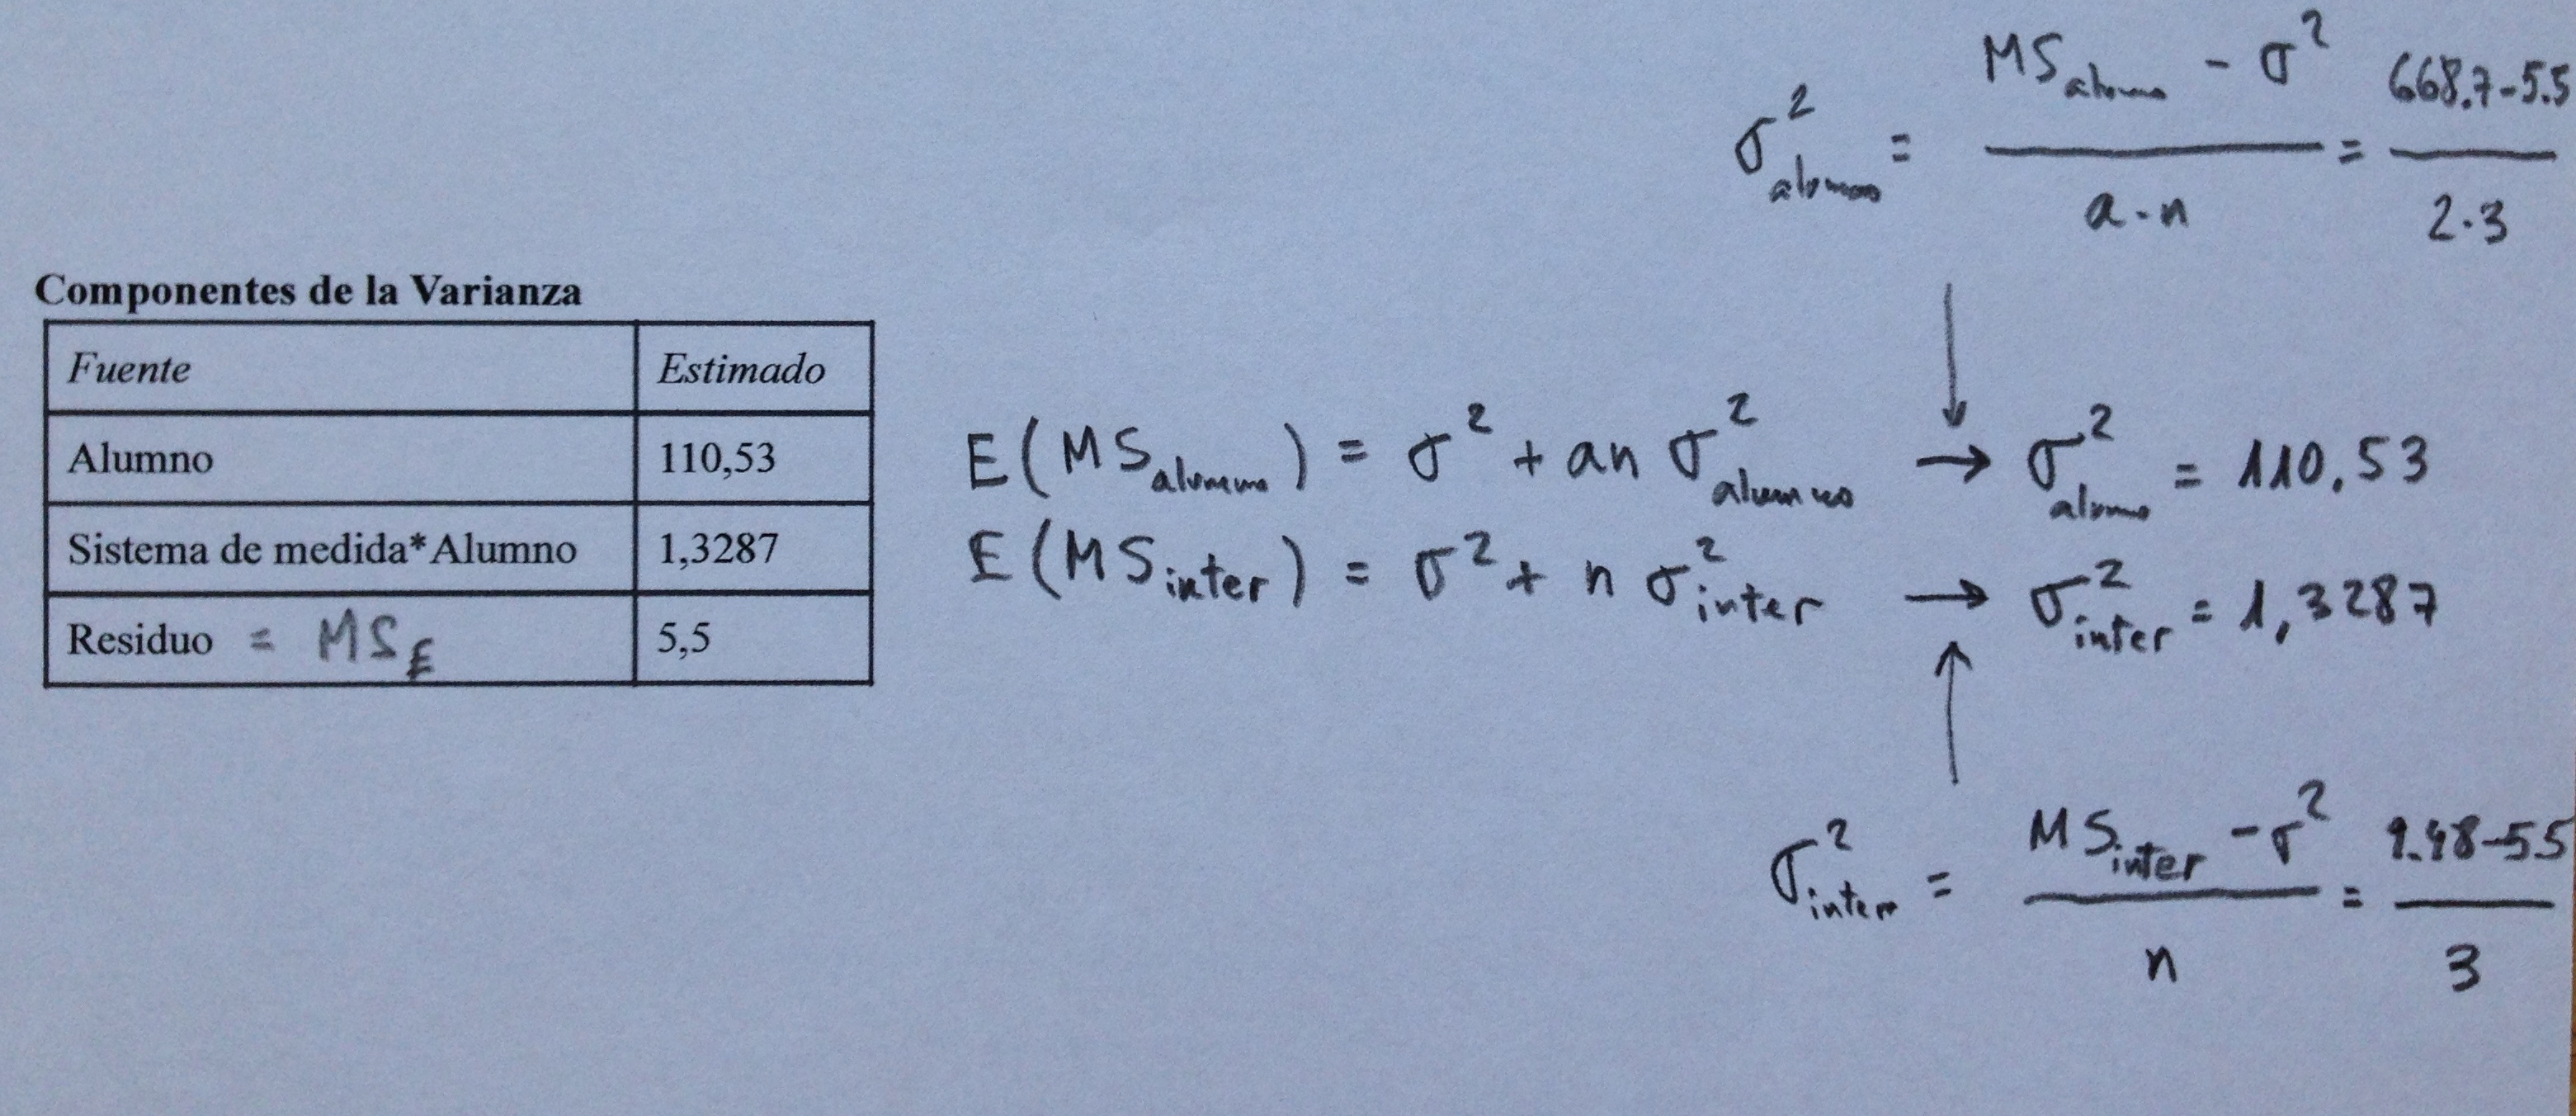 σ²alumno = MSalumno - σ² / a·n = 668.7-5.5 / 2·3
Componentes de la Varianza
Fuente Estimado
Alumno 110,53
Sistema de medida*Alumno 1,3287
Residuo = MSE 5,5
E(MSalumno) = σ² + an σ²alumno → σ²alumno = 110.53
E(MSinter) = σ² + n σ²inter → σ²inter = 1,3287
σ²inter = MSinter - σ² / n = 9.48-5.5 / 3